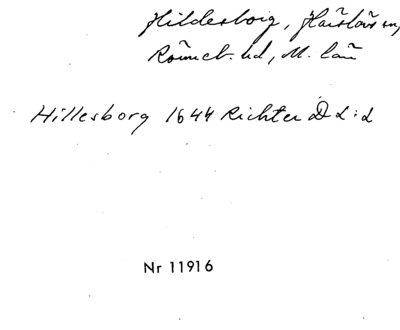 Hildesborg, Härslöv sn,
Rönneb. hd, M. län
Hillesborg 1644 Richter D L:d
Nr 11916